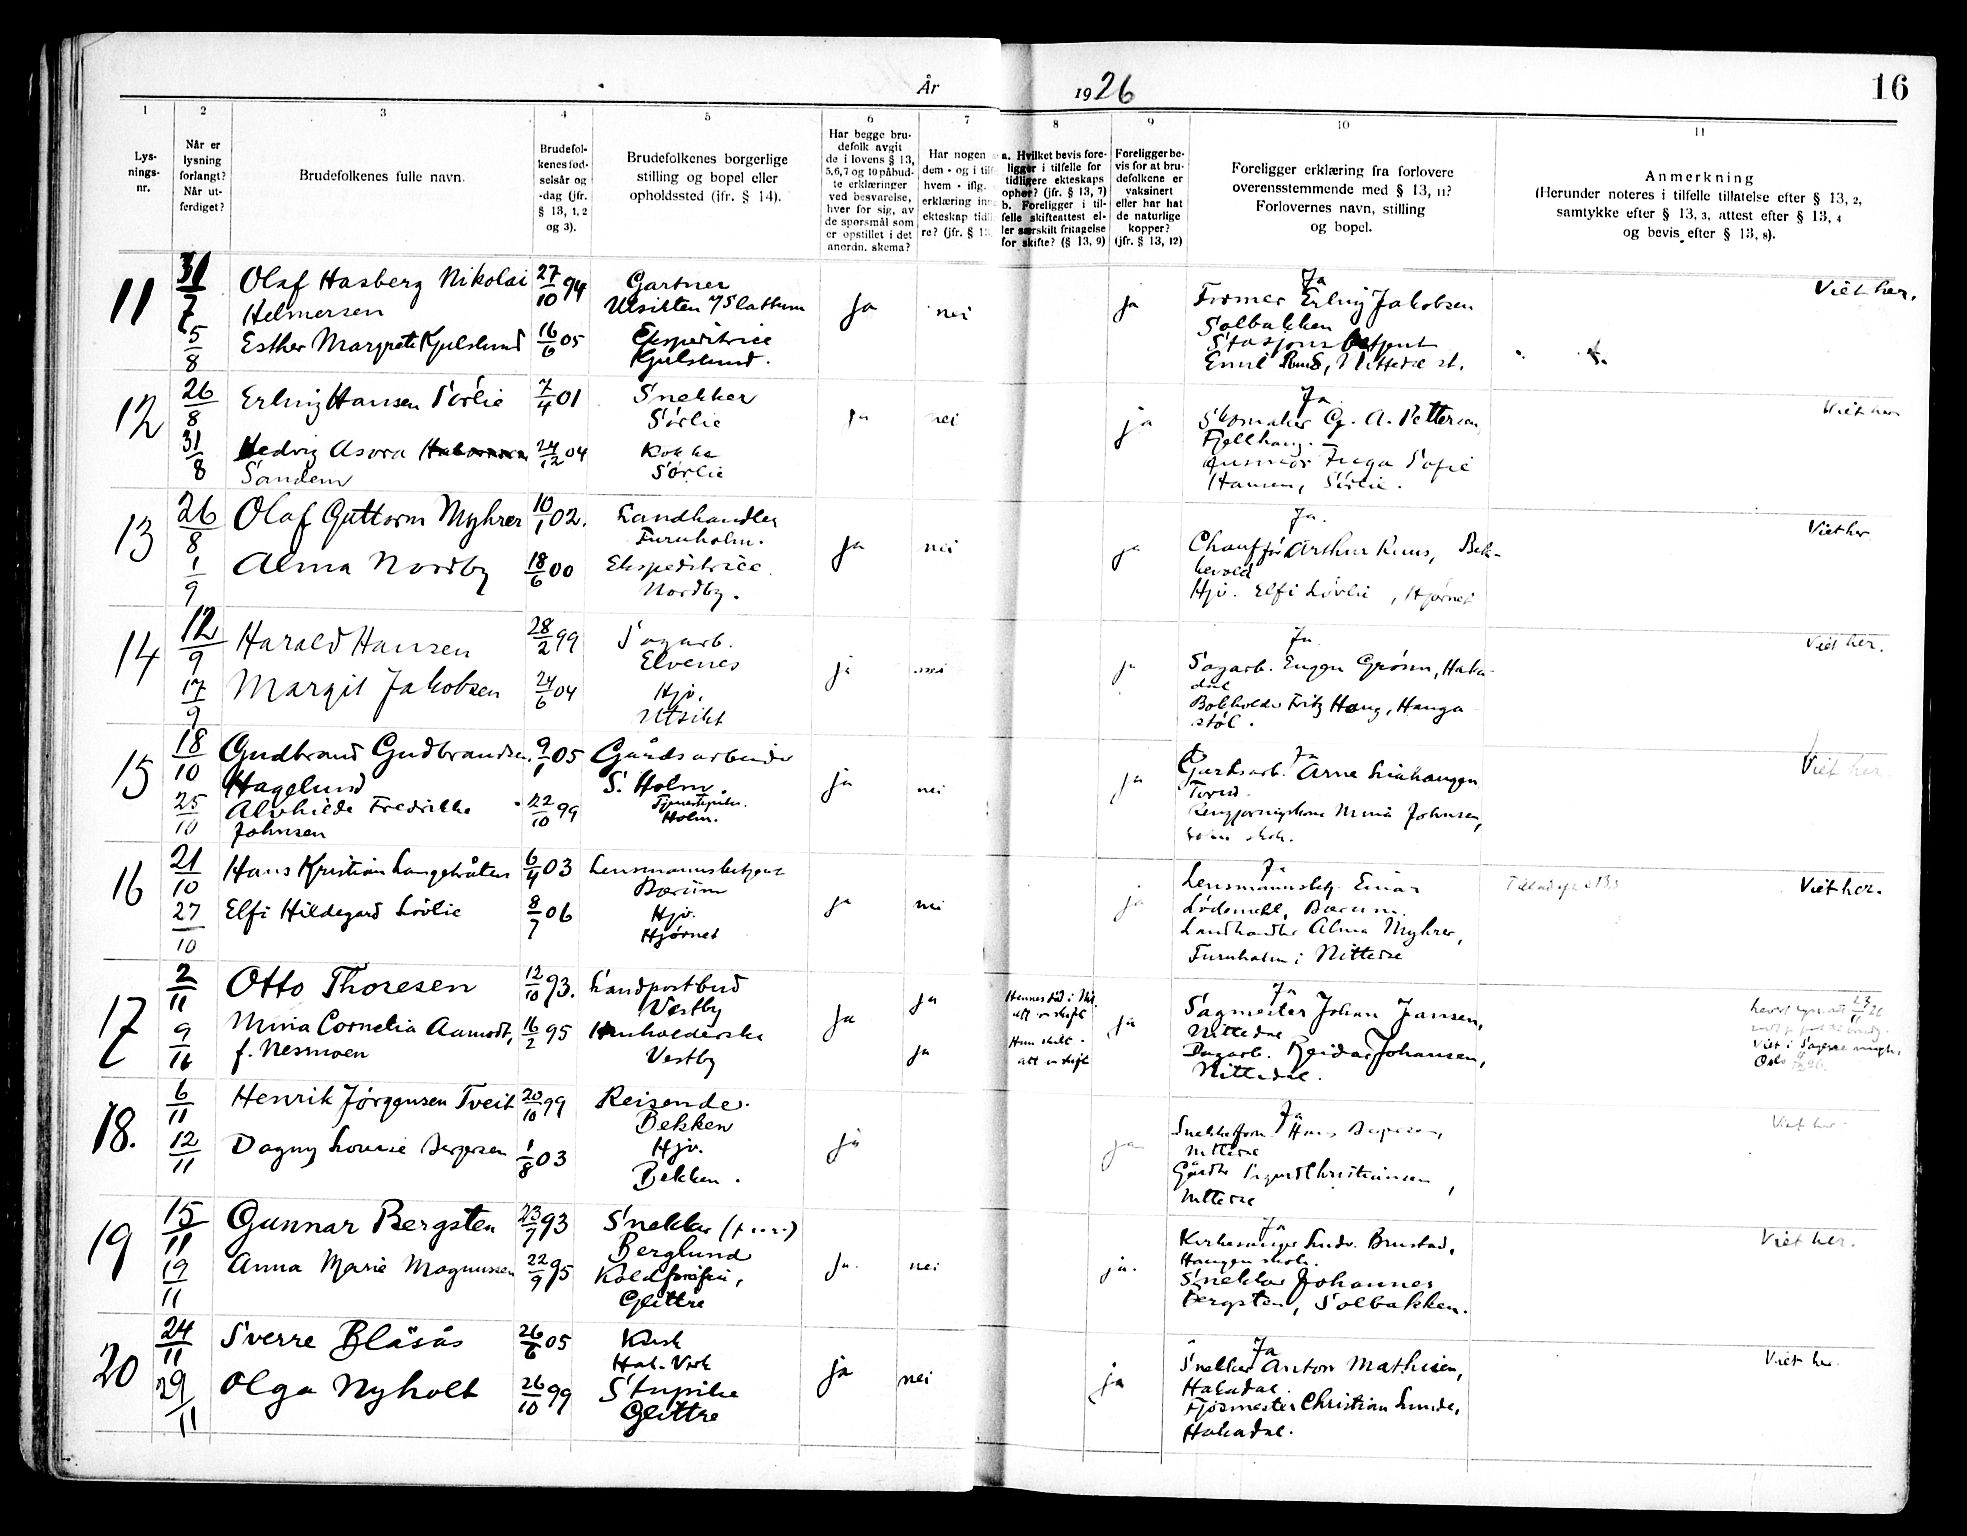 År 1926
16
1
2
3
4
5
6
7
8
9
10
11
Lys-
nings-
nr.
Når er
lysning
forlangt?
Når ut-
ferdiget?
Brudefolkenes fulle navn.
Brudefol-
kenes fød-
selsår og
-dag (jfr.
§ 13, 1, 2
og 3).
Brudefolkenes borgerlige
stilling og bopel eller
opholdssted (jfr. § 14).
Har begge bru-
defolk avgit
de i lovens § 13,
5,6,7 og 10 påbud-
te erklæringer
ved besvarelse,
hver for sig, av
de spørsmål som
er opstillet i det
anordn. skema?
Har nogen
dem - og i
hvem - iflg.
erklæring
ekteskap
re? (jfr. §
a. Hvilket bevis fore-
ligger i tilfelle for
tidligere ekteskaps
ophør? (jfr. § 13, 7)
b. Foreligger i til-
felle skifteattest el-
ler særskilt fritagelse
for skifte? (§ 13, 9)
Foreligger be-
vis for at bru-
defolkene er
vaksinert
eller har hat
de naturlige
kopper?
(jfr. § 13, 12)
Foreligger erklæring fra forlovere
overensstemmende med § 13, 11?
Forlovernes navn, stilling
og bopel.
Anmerkning
(Herunder noteres i tilfelle tillatelse efter § 13, 2,
samtykke efter § 13, 3, attest efter § 13, 4
og bevis efter § 13, 8).
11
31/7
5/8
Olaf Hasberg Nikolai
Helmersen
Esther Margrete Kjulslund
27/10 94
16/6 05
Gartner
Slattum
Ekspeditrice
Kjulslund.
ja
nei
ja
Ja
Erling Jakobsen
Solbakken
Stasjonsbetjent
Emil Ruud, Nittedal st.
Viet her.
12
26/8
31/8
Erling Hansen Sørlie
Hedvig Asora
Sandem
7/4 01
24/12 04
Snekker
Sørlie
Kokke
Sørlie
ja
nei
ja
Ja.
Skomaker G. A. Pettersen,
Fjellhaug.
Inga Sofie
Hansen, Sørlie.
Viet her
13
26/8
1/9
Olaf Guttorm Myhrer
Alma Nordby
10/1 02.
18/6 00
Landhandler
Furuholm.
Ekspeditrice.
Nordby.
ja
nei
ja
Ja.
Chauffør Arthur Ruus, Bek-
kevold
Hjv. Elfi Løvlie, Hjørnet
Viet her
14
12/9
17/9
Harald Hansen
Margit Jakobsen
28/2 99
24/6 04
Sagarb.
Elvenes
Hjv.
Utsikt
ja
nei
ja
Ja.
Sagarb. Eugen Grøsen, Haka-
dal
Bokholder Fritz Haug, Hauga-
støl.
Viet her.
15
18/10
25/10
Gudbrand Gudbrandsen
Hagelund
Alvhilde Fredrikke
Johnsen
9/1 05
22/10 99
Gårdsarbeider
S. Holm.
Holm.
ja
nei
ja
Ja
Gardsarb. Arne Linhaugen
Johnsen,
Viet her.
16
21/10
27/10
Hans Kristian Langebråten
Elfi Hildegard Løvlie
6/4 03
8/7 06
Lensmannsbetjent
Bærum
Hjv.
Hjørnet
ja
nei
ja
Ja
Lensmannsbetj. Einar
Lødemel, Bærum.
Landhandler Alma Myhrer,
Furuholm i Nittedal
Viet her.
17
2/11
9/11
Otto Thoresen
Mina Cornelia Aamodt,
f. Nesmoen
12/10 93.
16/2 95
Landpostbud
Vestby
Husholderske
Vestby
ja
ja
ja
ja
Ja
Sagmester Johan Jansen,
Nittedal
Dagarb. Reidar Johansen,
Nittedal.
Oslo
18.
6/11
12/11
Henrik Jørgensen Tveit
Dagny Lovise Bergersen
20/10 99
1/8 03
Reisende.
Bekken
Hjv.
Bekken.
ja
ja
Ja
Hans Bergersen,
Nittedal
Sigurd Christiansen,
Nittedal
Viet her.
19
15/11
19/11
Gunnar Bergsten
Anna Marie Magnussen
23/7 93
22/9 95
Snekker
Berglund
Koldjomfru,
Glittre
ja.
nei
ja.
Ja
Kirkesanger Ludv. Brustad,
Haugen skole.
Snekker Johannes
Bergsten, Solbakken.
Viet her.
20
24/11
29/11
Sverre Blåsås
Olga Nyholt
26/6 05
26/10 99
Kusk
Hak. Verk
Stupike
Glittre
ja
nei
ja
Ja
Snekker Anton Mathisen,
Hakadal.
Fjøsmester Christian Lunde,
Hakadal.
Viet her